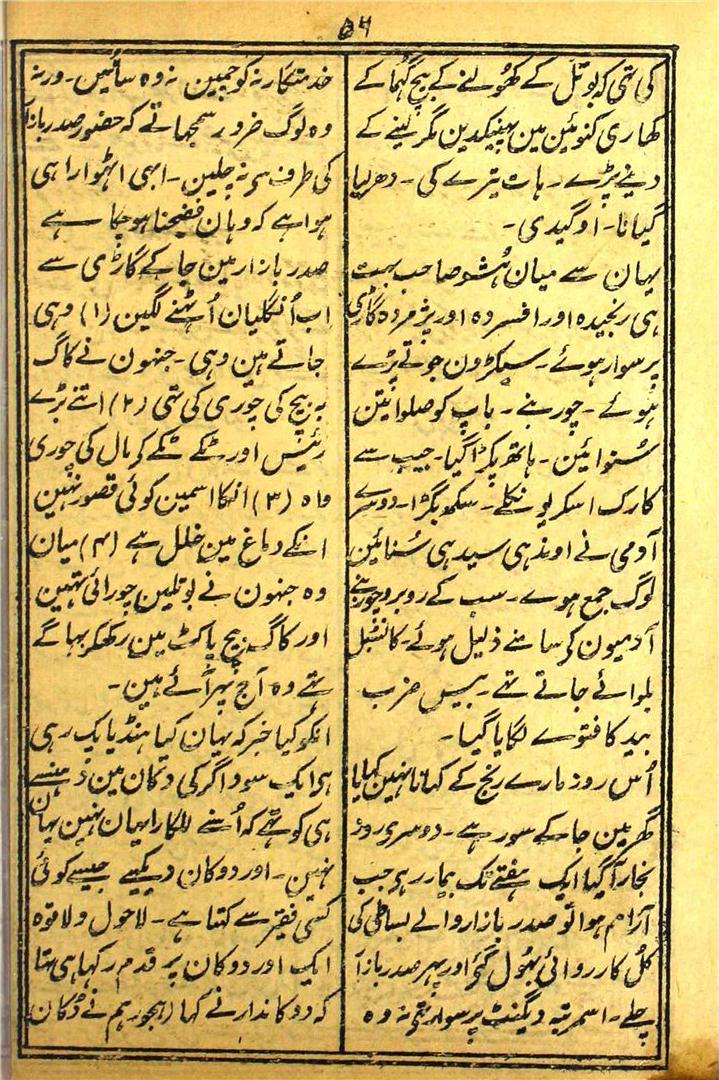 ۵۴
کی تھی کہ بوتل کے کھولنے کے پیچ گھما کے
کھاری کنوئین مین پھینکدین مگر لینے کے
دینے پڑے۔ ہات تیرے کی۔ دھر لیا
گیانا۔ اوگیدی۔
یہان سے میان ہُشو صاحب بہت
ہی رنجیدہ اور افسردہ اور پژمردہ گاڑی
پر سوار ہوئے۔ سیکڑون جوتے پڑے
ہوئے۔ چور بنے۔ باپ کو صلواتین
سُنوائین۔ ہاتھ پکڑا گیا۔ جیب سے
کارک اسکریو نکلے۔ سکھ بگڑا۔ دوسرے
آدمی نے اوندہی سیدہی سُنائین
لوگ جمع ہوے۔ سب کے روبرو چور بنے
آدمیون کے سامنے ذلیل ہوئے۔ کانسٹبل
بلوائے جاتے تھے۔ بیس ضرب
بید کا فتوے لگایا گیا۔
اُس روز مارے رنج کے کہانا نہین کہایا
گھر مین جا کے سو رہے۔ دوسری روز
بخار آگیا ایک ہفتے تک بیمار رہے جب
آرام ہوا تو صدر بازار والے بساطی کی
کل کارروائی بھول گئی اور پہر صدر بازار
چلے۔ اسمرتبہ ویگنٹ پر سوار تھے نہ وہ
خدمتگار نہ کوچمین نہ وہ سائین۔ ورنہ
وہ لوگ ضرور سمجھاتے کہ حضور صدر بازار
کی طرف سے نہ چلین۔ ابہی اٹھوارا ہی
ہوا ہے کہ وہان فضیحتا ہو چکا ہے
صدر بازار مین جا کے گاڑی سے
اب اُنگلیان اُٹہنے لگین (۱) وہی
جاتے ہین وہی۔ جنہون نے کاگ
پیچ کی چوری کی تھی (۲) اتنے بڑے
رئیس اور ٹکے ٹکے کے مال کی چوری
واہ (۳) انکا اسمین کوئی قصور نہین
انکے دماغ مین خلل ہے (۴) میان
وہ جنہون نے بوتلین چورائی تہین
اور کاگ پیچ پاکٹ مین رکھکر بہاگے
تھے وہ آج پہر آئے ہین۔
انکو کیا خبر کہ یہان کیا ہنڈیا پک رہی
ہی ایک سوداگر کی دکان مین دہنسے
ہی کو تہے کہ اُسنے للکارا یہان نہین یہان
نہین۔ اور دوکان دیکہیے جیسے کوئی
کسی فقیر سے کہتا ہے۔ لاحول ولا قوہ
ایک اور دوکان پر قدم رکہا ہی تہا
کہ دوکاندار نے کہا (ہجور ہم نے دُکان